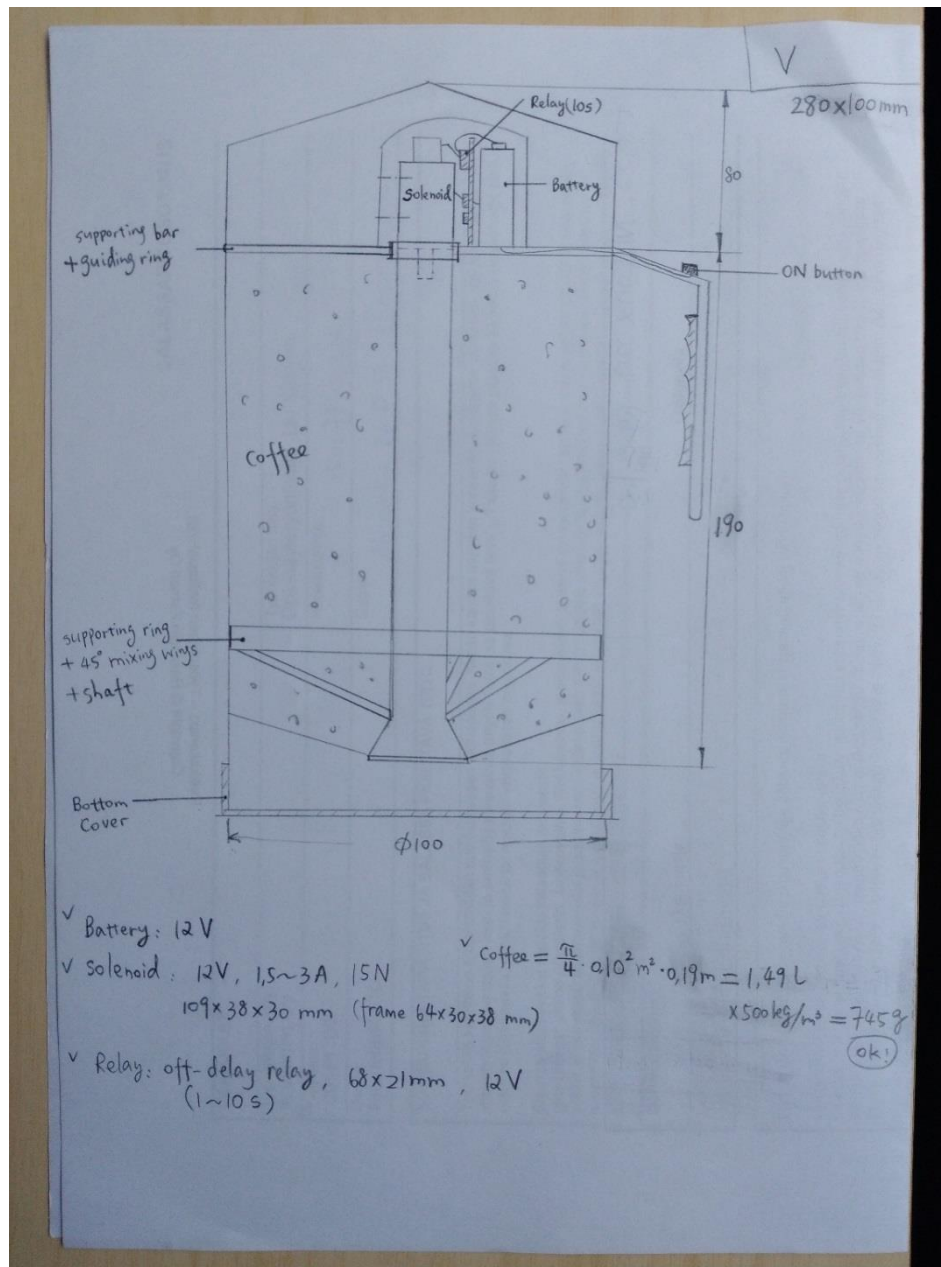 V
280x100mm
Relay(10s)
80
Solenoid
Battery
supporting bar
+guiding ring
ON button
Coffee
190
supporting ring
+ 45° mixing wings
+shaft
Bottom
Cover
φ100
v Battery: 12V
v Solenoid: 12V, 1,5~3A, 15N
109x38x30 mm (frame 64x30x38 mm)
v Relay: off-delay relay, 68x21mm, 12V
(1~10s)
v Coffee = π/4 · 0,10² m² · 0,19m = 1,49 L
x500kg/m³ = 745g
OK!